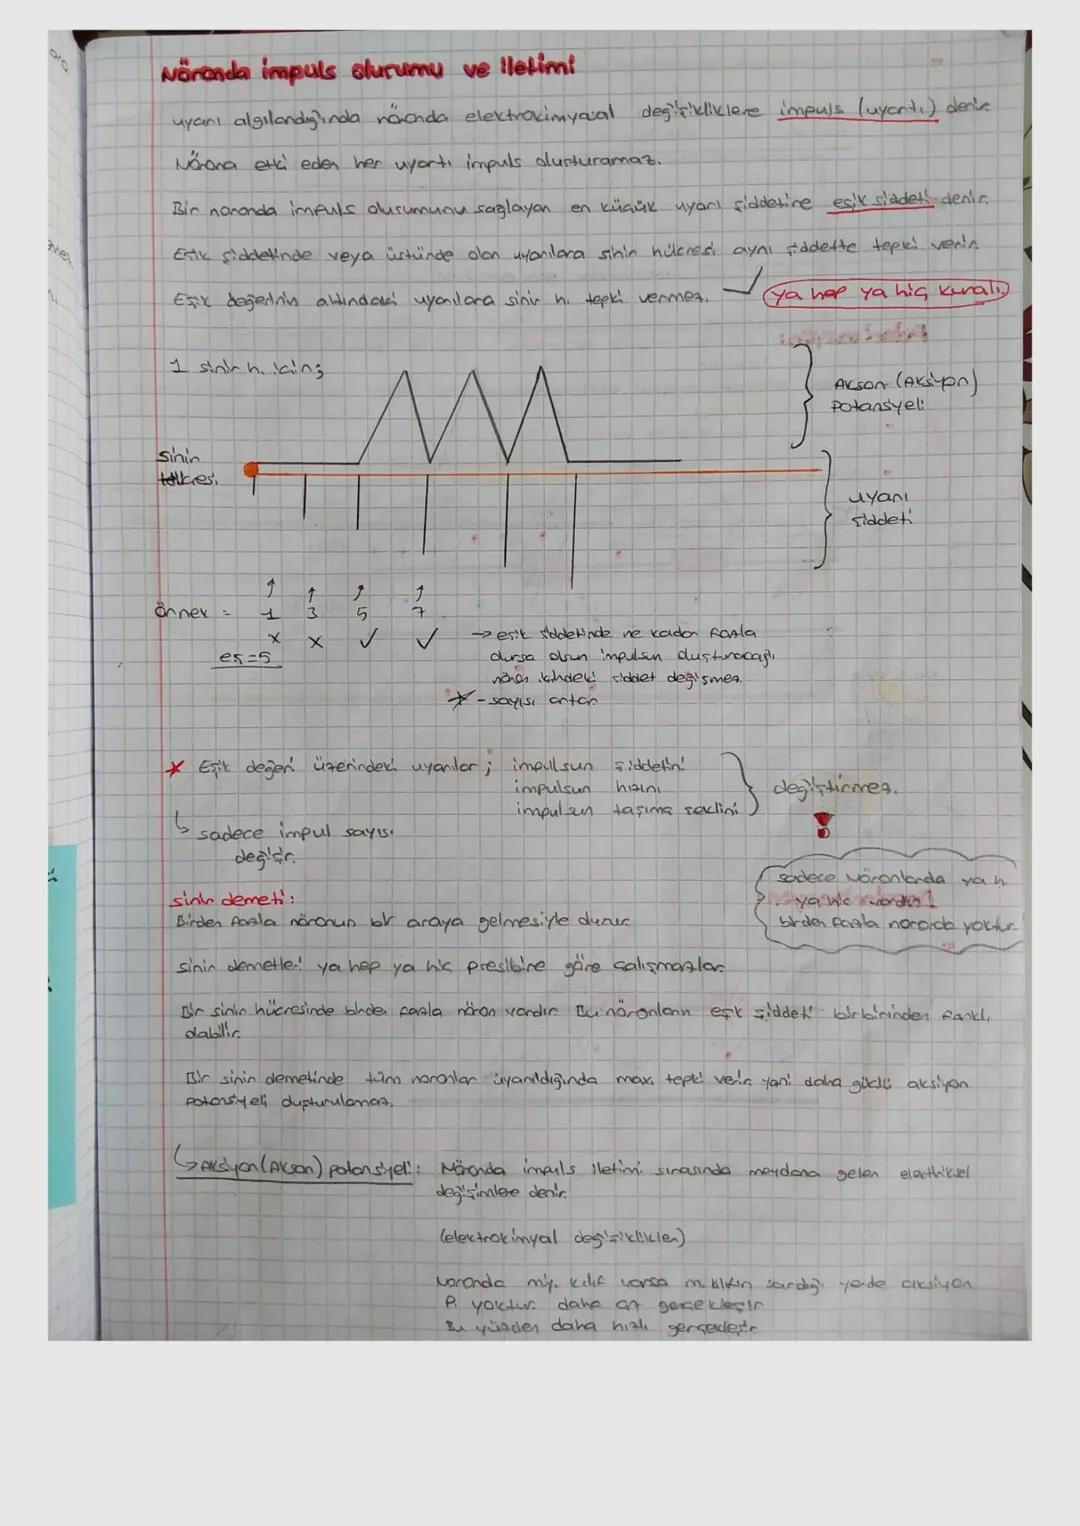 Nöronda impuls oluşumu ve iletimi
uyarı algılandığında nöronda elektrokimyasal değişikliklere impuls (uyartı) denir.
Nörona etki eden her uyartı impuls oluşturamaz.
Bir noronda impuls oluşumunu sağlayan en küçük uyarı şiddetine eşik şiddeti denir.
Eşik şiddetinde veya üstünde olan uyarılara sinir hücresi aynı şiddette tepki verir.
Eşik değerinin altındaki uyarılara sinir h. tepki vermez. ya hep ya hiç kuralı
1 sinir h. için;
Akson (Aksiyon)
Potansiyeli
sinir
uyarı
şiddeti
örnek = 1 3 5 7
x x ✓ ✓
eş=5
→ eşik şiddetinde ne kadar fazla
olursa olsun impulsun oluşturacağı
nöron içindeki şiddet değişmez.
* - sayısı artar
* Eşik değeri üzerindeki uyarılar; impulsun şiddetini
impulsun hızını
impulsun taşıma şeklini
değiştirmez.
sadece impul sayısı
değişir.
sadece nöronlarda ya h
ya hiç vardır!
birden fazla nororda yoktur
sinir demeti:
Birden fazla nöronun bir araya gelmesiyle olunur.
sinir demetleri ya hep ya hiç presibine göre çalışmazlar.
Bir sinir hücresinde birden fazla nöron vardır. Bu nöronların eşik şiddeti birbirinden farklı
olabilir.
Bir sinir demetinde tüm noronlar uyarıldığında max. tepki verir yani daha güçlü aksiyon
potansiyeli oluşturulamaz.
↳ Aksiyon (Akson) potansiyeli: Nöronda impuls iletimi sırasında meydana gelen elektriksel
değişimlere denir.
(elektrokimyal değişiklikler)
Noronda miy. kılıf varsa m. kılıfın sardığı yerde aksiyon
P. yoktur. daha az gerçekleşir
Bu yüzden daha hızlı gerçekleşir